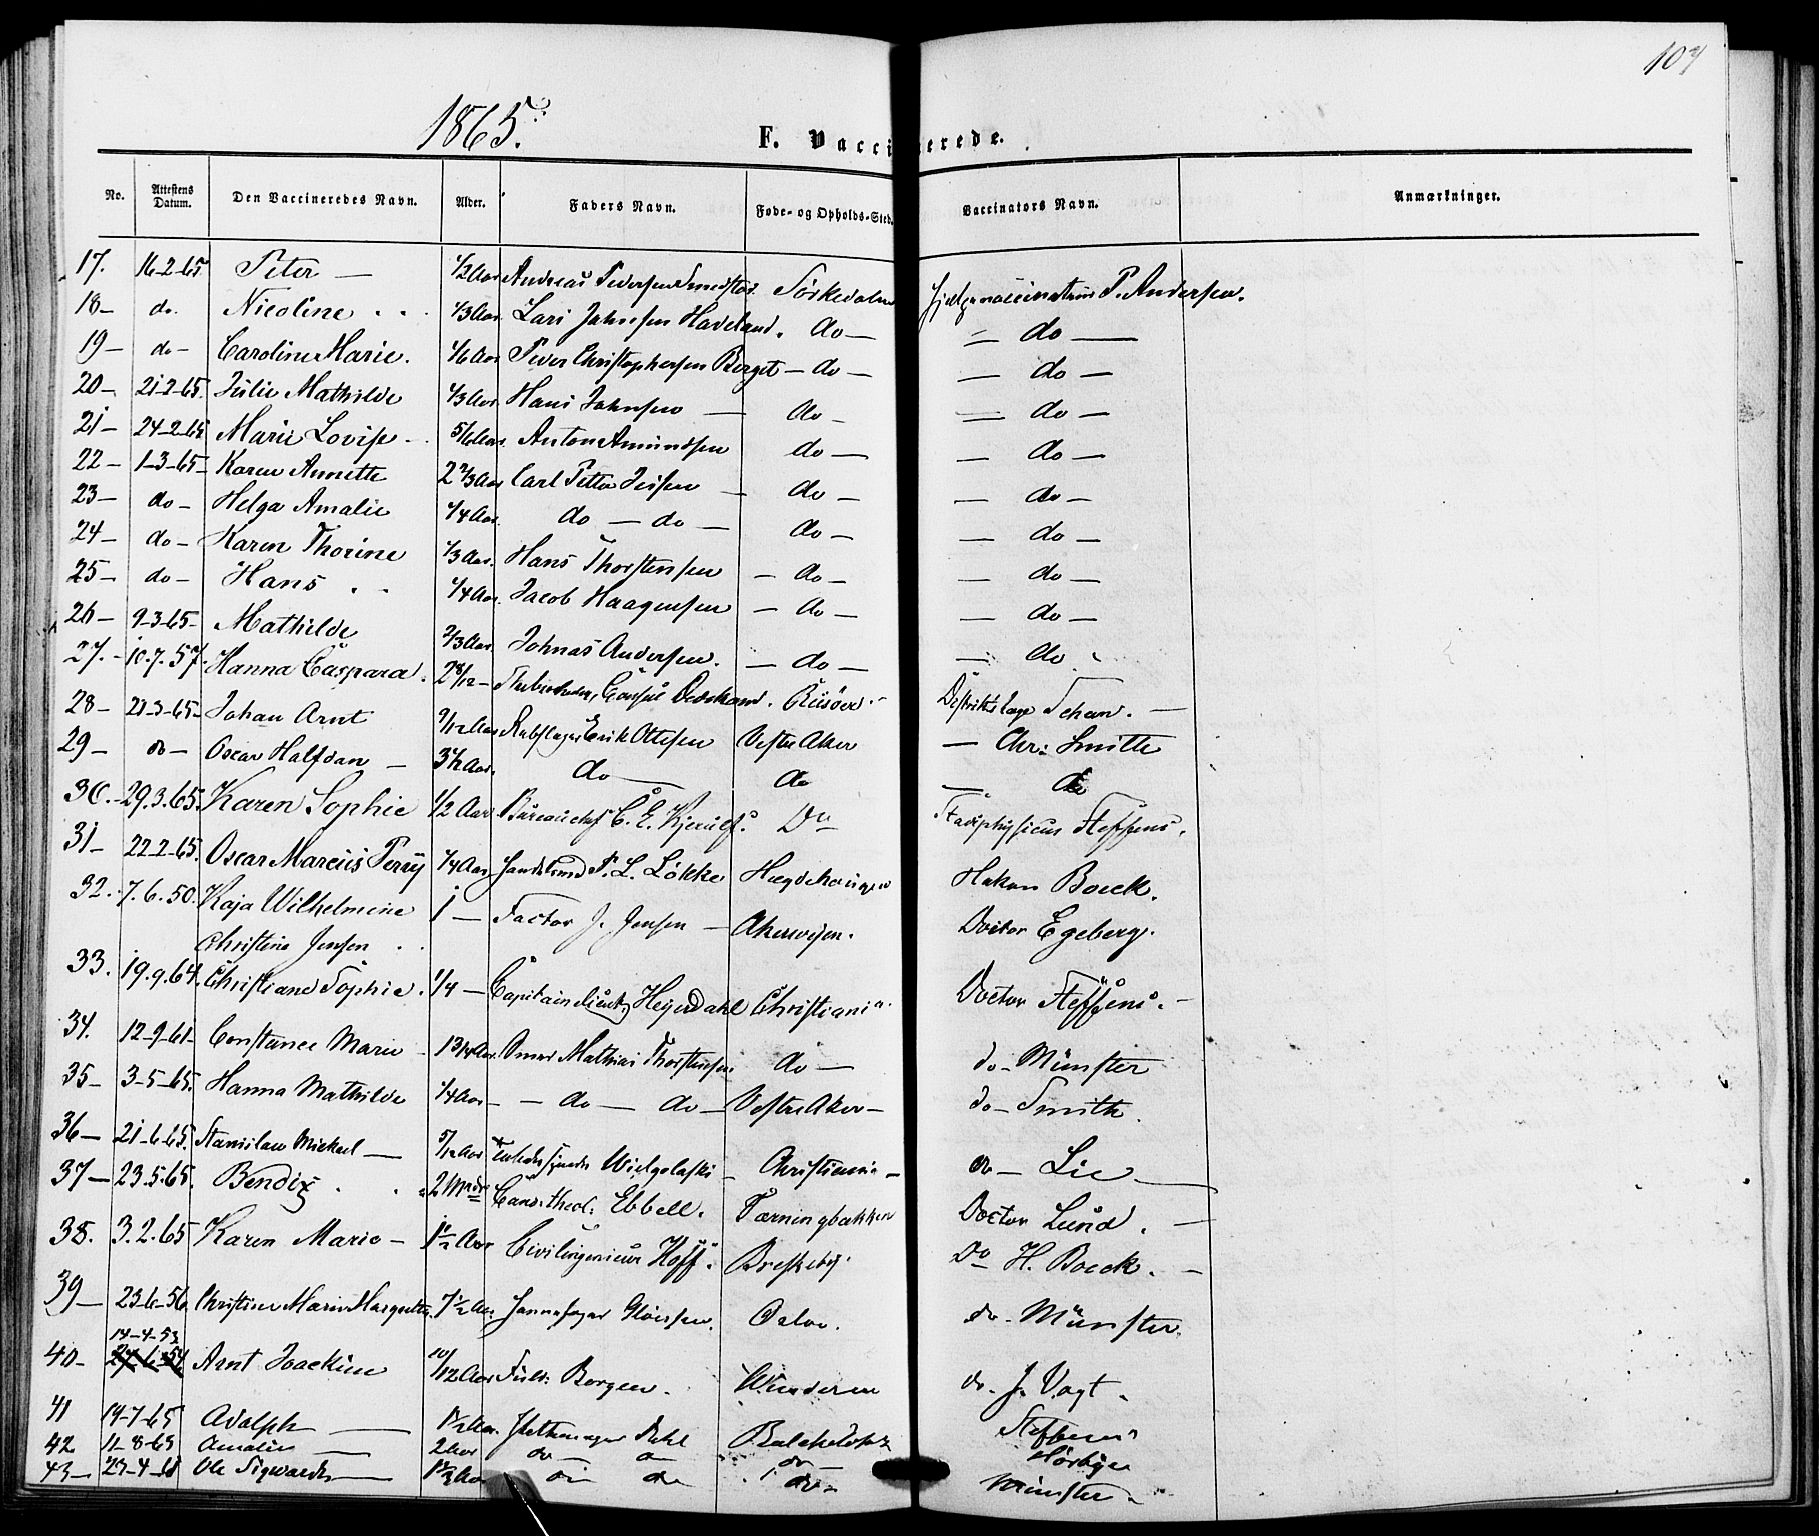 107
1865.
F. Vaccinerede.
No. Attestens Datum. Den Vaccineredes Navn. Alder. Faders Navn. Føde- og Opholds-Sted. Vaccinators Navn. Anmærkninger.
17. 16-2-65. Peter — 1/2 Aar Andreas Pedersen Smedstad. Sørkedalen Hjelpevaccinatrice P. Andersen.
18- do. Nicoline 1/3 Aar. Lars Johnsen Haveland. do — do —
19- do- Caroline Marie. 1/6 Aar. Peder Christophersen Berget - do — — do —
20- 21-2-65. Julie Mathilde 1/3 Aar. Hans Johnsen — do — — do —
21- 24-2-65 Marie Lovise 5/6 Aar. Anton Amundsen do — — do —
22- 1-3-65- Karen Annette 2 2/3 Aar Carl Petter — do — — do —
23- do- Helga Amalie 1/4 Aar. do — do — do — — do —
24- do- Karen Thorine 1/3 Aar. Hans Thorstensen - do — — do —
25- do- Hans 1/4 Aar. Jacob Haagensen - do — — do —
26- 9-3-65- Mathilde 2/3 Aar. Johnas Andersen. - do — — do
27.- 10.7.57. Hanna Caspara. 2 8/12 - Consul Risøer. Distriktslæge Schan. —
28- 21-3-65- Johan Arnt 9/12 Aar Rebslager Erik Ottesen Vestre Aker — Chr. Smith
29- do- Oscar Halfdan — 3 1/2 Aar. do — do — do
30.- 29.3.65. Karen Sophie 1/2 Aar. Bureauchef C. E. Kjerulf. Do Stadsphysicus Steffens.
31- 22-2-65. Oscar Marcus Perry 1/4 Aar Handelsmd P. L. Løkke Hægdehaugen Hakon Boeck.
32.- 7.6.50. Kaja Wilhelmine 1 — Factor J. Jensen — Akersvejen. Doctor Egeberg.
Christine Jensen
33. 19.9.64. Christiane Sophie. 1/4 — Capitainlieut. Heyerdahl Christiania. Doctor Steffens. —
34. 12-9-61- Constance Marie - 1 3/4 Aar. Mathias Thorstensen do — do - Münster
35- 3-5-65. Hanna Mathilde 1/4 Aar - — do — do — Vestre Aker — do - Smith.
36- 21-6-65. Stanislau Michael — 5/12 Aar Wielgolaski - Christiania - do - Lie —
37- 23.5.65. Bendix 2 Mdr Cand. theol. Ebbell. Tærningbækken Doctor Lund. —
38. 3.2.65 Karen Marie - 1 1/2 Aar Civilingenieur Hoff. Breskeby. Do H. Boeck. —
39- 23-6-56. Christine Marie Margrethe. 7 1/2 Aar. Gløersen. Oslo. do - Münster.
14-4-53
40- Arnt Joackim 10/12 Aar Fuldm. Borgen. Vinderen do - J. Vogt.
41 14-7-65 Adolph — 1 1/2 Aar. Dehl Steffens
42 11-8-65 Amalie — 2 Aar do — do do —
43- Ole Sigwardt — 1 1/2 Aar do do do - Münster -